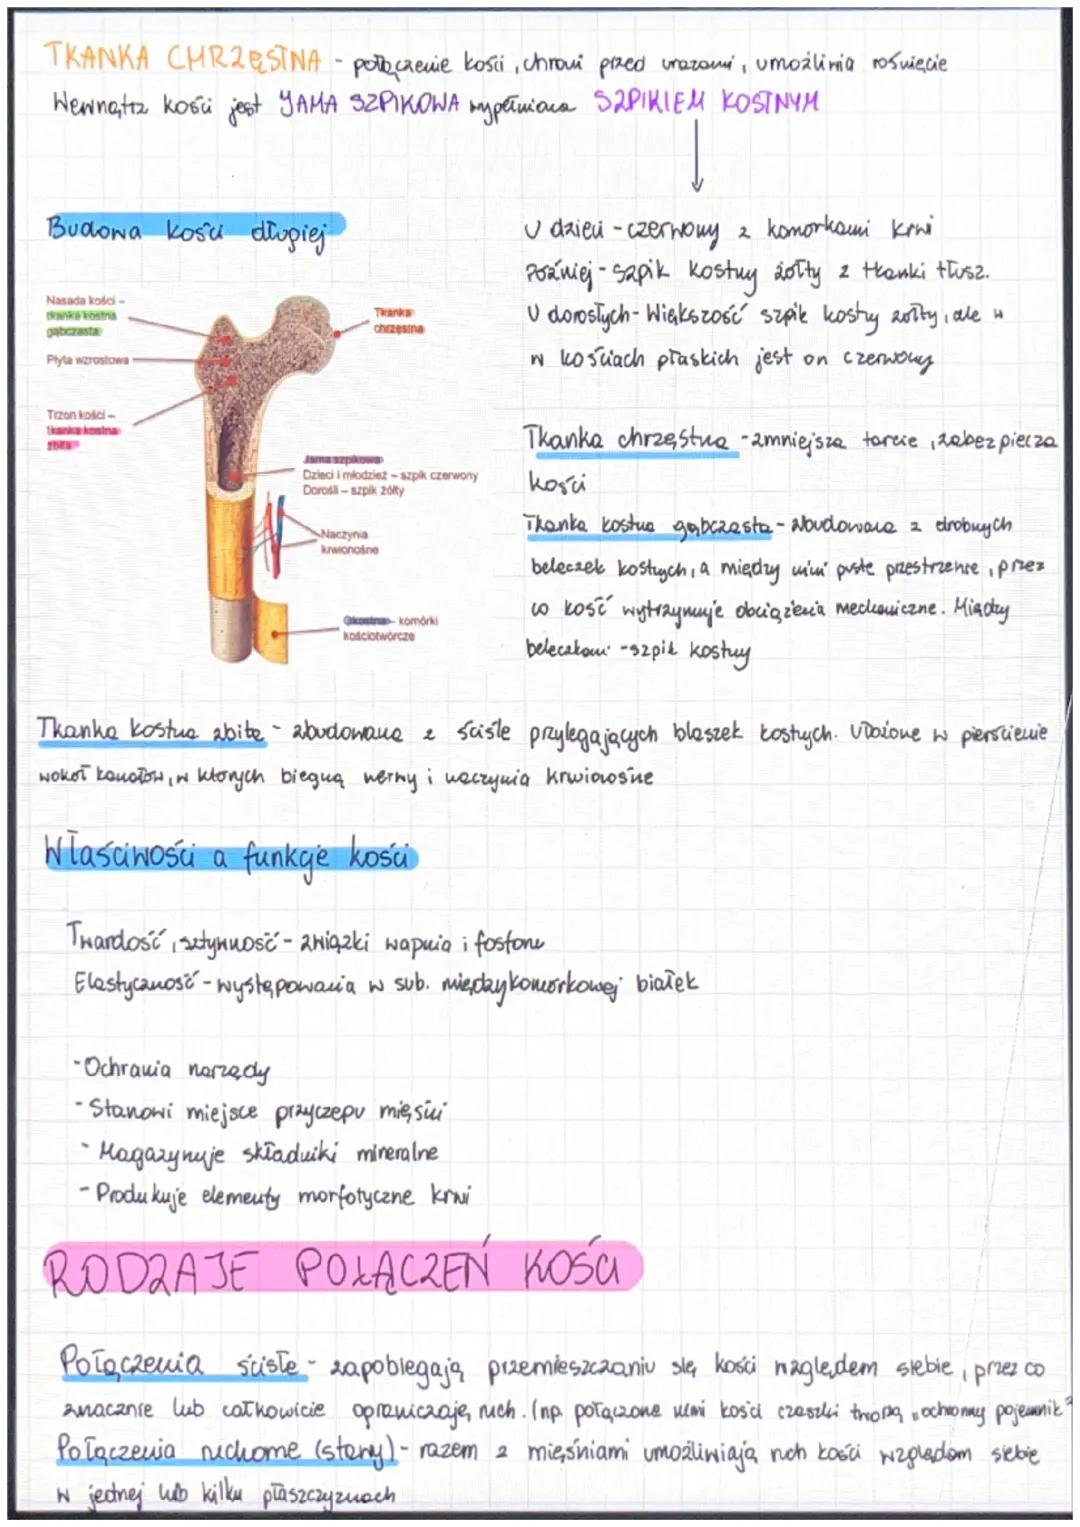 TKANKA CHRZĘSTNA - połączenie kości, chroni przed urazami, umożlinia rośnięcie
Wewnątrz kości jest JAMA SZPIKOWA wypełniona SZPIKIEM KOSTNYM
Budowa kości długiej
U dzieci - czerwony z komorkami krwi
Później - szpik kostny żółty z tkanki tłusz.
U dorosłych - Większość szpik kostny żółty, ale w
w kościach płaskich jest on czerwony
Nasada kości -
tkanka kostna
gąbczasta
Płyta wzrostowa
Trzon kości –
tkanka kostna
zbita
Tkanka
chrzęstna
Jama szpikowa
Dzieci i młodzież – szpik czerwony
Dorośli – szpik żółty
Naczynia
krwionośne
Okostna - komórki
kościotwórcze
Tkanka chrzęstna - zmniejsza tarcie, zabezpiecza
kości
Tkanka kostna gąbczasta - zbudowana z drobnych
beleczek kostnych, a między nimi puste przestrzenie, przez
co kość wytrzymuje obciążenia mechaniczne. Między
beleczkami - szpik kostny
Tkanka kostna zbita - zbudowana z ściśle przylegających blaszek kostnych. Ułożone w pierścienie
wokół kanałów, w których biegną nerwy i naczynia krwionośne
Właściwości a funkcje kości
Twardość, sztywność - związki wapnia i fosforu
Elastyczność - występowania w sub. międzykomórkowej białek
- Ochrania narządy
- Stanowi miejsce przyczepu mięśni
- Magazynuje składniki mineralne
- Produkuje elementy morfotyczne krwi
RODZAJE POŁĄCZEŃ KOŚCI
Połączenia ścisłe - zapobiegają przemieszczaniu się kości względem siebie, przez co
znacznie lub całkowicie ograniczaję ruch. (np. połączone nimi kości czaszki tworzą „ochronny pojemnik"
Połączenia ruchome (stawy) - razem z mięśniami umożliwiają ruch kości względem siebie
w jednej lub kilku płaszczyznach